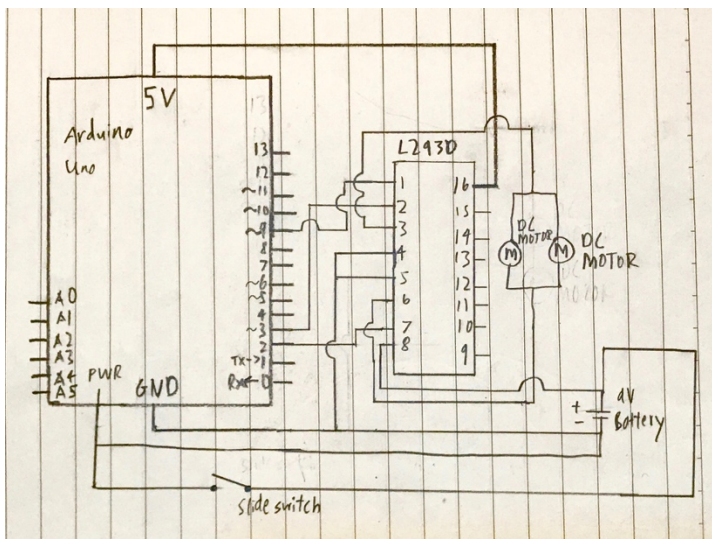 5V
Arduino
Uno
13
12
~11
~10
~9
8
7
~6
~5
4
~3
2
TX→1
RX←0
A0
A1
A2
A3
A4
A5
PWR
GND
L293D
1
2
3
4
5
6
7
8
16
15
14
13
12
11
10
9
DC
MOTOR
M
M
DC
MOTOR
+
-
9V
Battery
slide switch